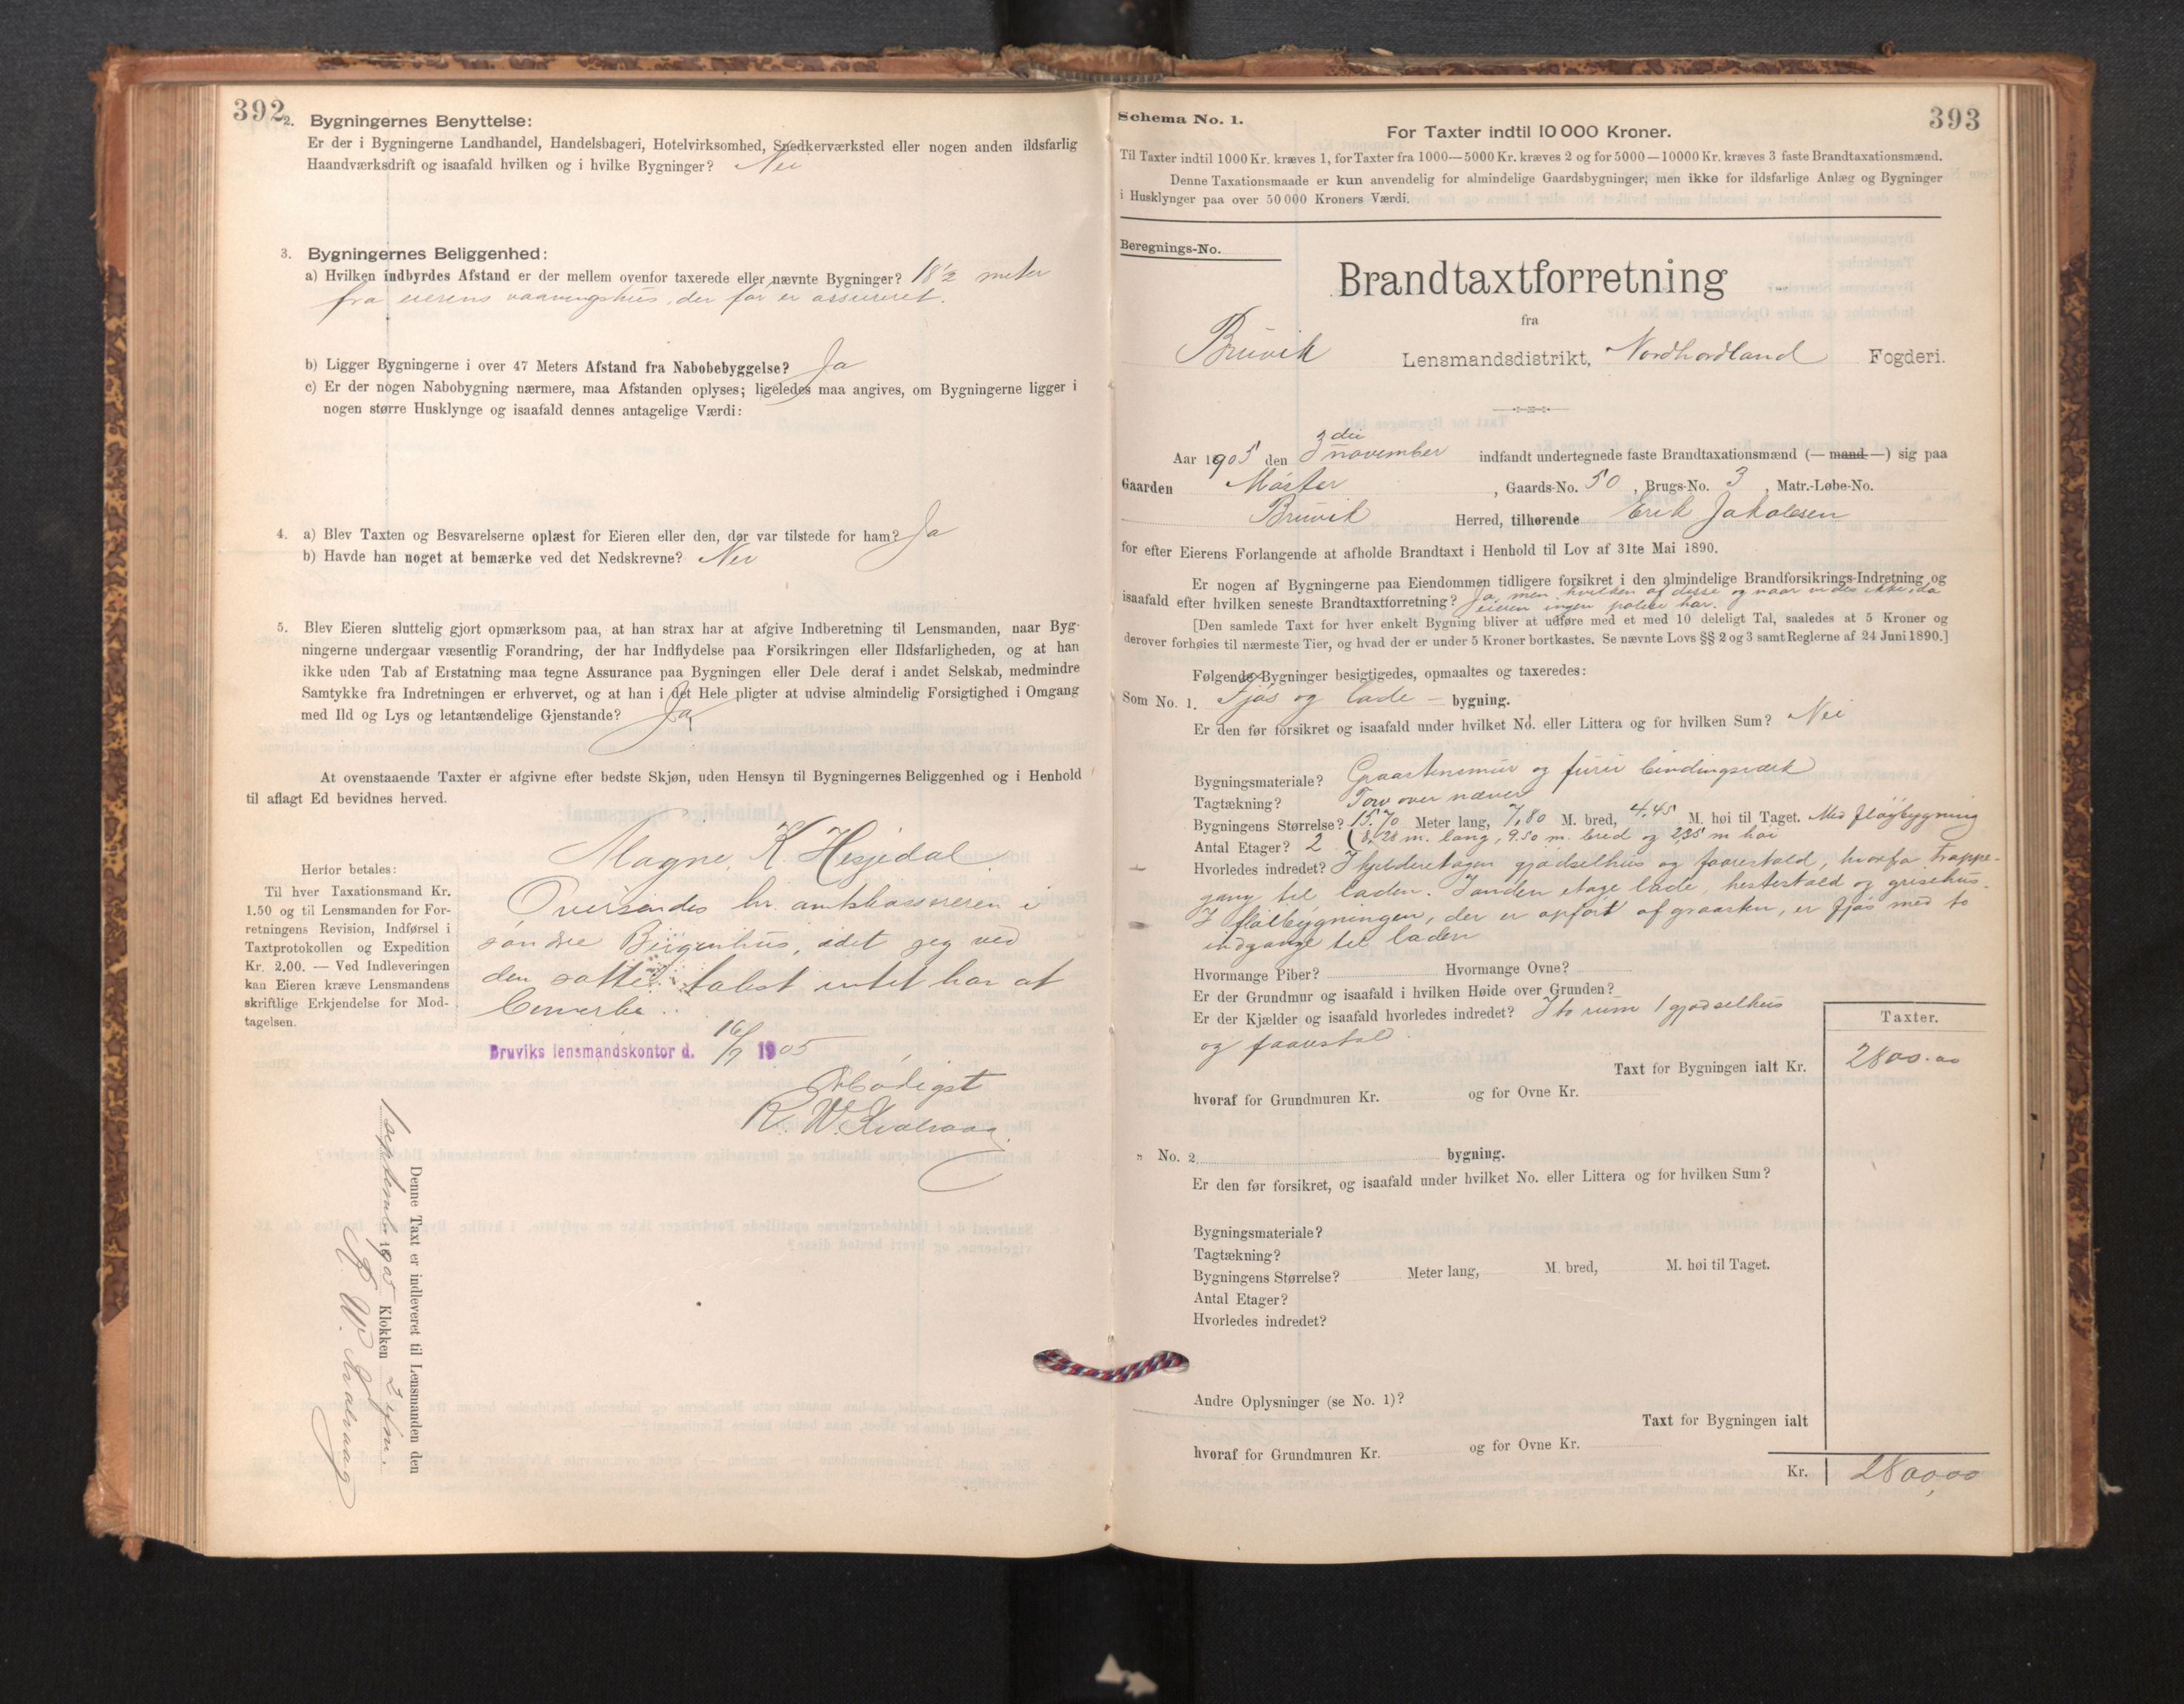 392
2. Bygningernes Benyttelse:
Er der i Bygningerne Landhandel, Handelsbageri, Hotelvirksomhed, Snedkerværksted eller nogen anden ildsfarlig
Haandværksdrift og isaafald hvilken og i hvilke Bygninger? Nei
3. Bygningernes Beliggenhed:
a) Hvilken indbyrdes Afstand er der mellem ovenfor taxerede eller nævnte Bygninger? 18 1/2 meter
fra eierens vaaningshus, der før er assureret.
b) Ligger Bygningerne i over 47 Meters Afstand fra Nabobebyggelse? Ja
c) Er der nogen Nabobygning nærmere, maa Afstanden oplyses; ligeledes maa angives, om Bygningerne ligger i
nogen større Husklynge og isaafald dennes antagelige Værdi:
4. a) Blev Taxten og Besvarelserne oplæst for Eieren eller den, der var tilstede for ham? Ja
b) Havde han noget at bemærke ved det Nedskrevne? Nei
5. Blev Eieren sluttelig gjort opmærksom paa, at han strax har at afgive Indberetning til Lensmanden, naar Byg-
ningerne undergaar væsentlig Forandring, der har Indflydelse paa Forsikringen eller Ildsfarligheden, og at han
ikke uden Tab af Erstatning maa tegne Assurance paa Bygningen eller Dele deraf i andet Selskab, medmindre
Samtykke fra Indretningen er erhvervet, og at han i det Hele pligter at udvise almindelig Forsigtighed i Omgang
med Ild og Lys og letantændelige Gjenstande? Ja
At ovenstaaende Taxter er afgivne efter bedste Skjøn, uden Hensyn til Bygningernes Beliggenhed og i Henhold
til aflagt Ed bevidnes herved.
Magne K Hesjedal
Herfor betales:
Til hver Taxationsmand Kr.
1.50 og til Lensmanden for For-
retningens Revision, Indførsel i
Taxtprotokollen og Expedition
Kr. 2.00. — Ved Indleveringen
kan Eieren kræve Lensmandens
skriftlige Erkjendelse for Mod-
tagelsen.
Oversendes hr. amtskassereren i
søndre Bergenhus, idet jeg ved
den satte takst intet har at
bemerke.
Bruviks lensmandskontor d. 16/9 1905
Ærbødigst
K. W. Kvalvaag.
Denne Taxt er indleveret til Lensmanden den
1 september 1905 Klokken 2 efm.
K. W. Kvalvaag
393
Schema No. 1.
For Taxter indtil 10 000 Kroner.
Til Taxter indtil 1000 Kr. kræves 1, for Taxter fra 1000—5000 Kr. kræves 2 og for 5000—10000 Kr. kræves 3 faste Brandtaxationsmænd.
Denne Taxationsmaade er kun anvendelig for almindelige Gaardsbygninger, men ikke for ildsfarlige Anlæg og Bygninger
i Husklynger paa over 50 000 Kroners Værdi.
Beregnings-No.
Brandtaxtforretning
fra
Bruvik Lensmandsdistrikt, Nordhordland Fogderi.
Aar 1905 den 3die november indfandt undertegnede faste Brandtaxationsmænd (— mand —) sig paa
Gaarden Møster, Gaards-No. 50, Brugs-No. 3, Matr.-Løbe-No.
Bruvik Herred, tilhørende Erik Jakobsen
for efter Eierens Forlangende at afholde Brandtaxt i Henhold til Lov af 31te Mai 1890.
Er nogen af Bygningerne paa Eiendommen tidligere forsikret i den almindelige Brandforsikrings-Indretning og
isaafald efter hvilken seneste Brandtaxtforretning? Ja, men hvilken af disse og naar vides ikke, da
eieren ingen police har.
[Den samlede Taxt for hver enkelt Bygning bliver at udføre med et med 10 deleligt Tal, saaledes at 5 Kroner og
derover forhøies til nærmeste Tier, og hvad der er under 5 Kroner bortkastes. Se nævnte Lovs §§ 2 og 3 samt Reglerne af 24 Juni 1890.]
Følgende Bygninger besigtigedes, opmaaltes og taxeredes:
Som No. 1. Fjøs og lade — bygning.
Er den før forsikret og isaafald under hvilket No. eller Littera og for hvilken Sum? Nei
Bygningsmateriale? Graastensmur og furu bindingsværk
Tagtækning? Torv over næver
Bygningens Størrelse? 15.70 Meter lang, 7,80 M. bred, 4.45 M. høi til Taget. Med fløybygning
Antal Etager? 2 (8,28 m. lang, 9.50 m. bred og 2,35 m høi
Hvorledes indredet? I kjelderetagen gjødselhus og faarestald, hvorfra trappe-
gang til laden. I anden etage lade, hestestald og grisehus.
I fløibygningen, der er opført af graasten, er fjøs med to
indgange til laden
Hvormange Piber? Hvormange Ovne?
Er der Grundmur og isaafald i hvilken Høide over Grunden?
Er der Kjælder og isaafald hvorledes indredet? I to rum 1 gjødselhus
og faarestald.
Taxter.
Taxt for Bygningen ialt Kr. 2800.00
hvoraf for Grundmuren Kr. og for Ovne Kr.
" No. 2 bygning.
Er den før forsikret, og isaafald under hvilket No. eller Littera og for hvilken Sum?
Bygningsmateriale?
Tagtækning?
Bygningens Størrelse? Meter lang, M. bred, M. høi til Taget.
Antal Etager?
Hvorledes indredet?
Andre Oplysninger (se No. 1)?
Taxt for Bygningen ialt
hvoraf for Grundmuren Kr. og for Ovne Kr.
Kr. 2800,00